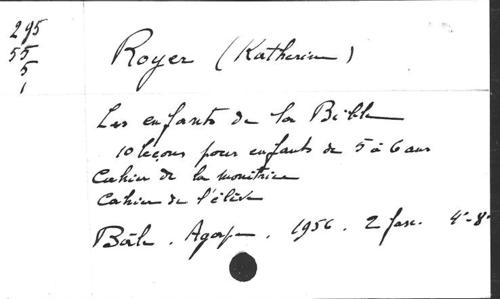 295
55
5
1
Royer (Katherine)
Les enfants de la Bible
10 leçons pour enfants de 5 à 6 ans
Cahier de la monitrice
Cahier de l'élève
Bâle. Agape. 1956. 2 fasc. 4°-8°